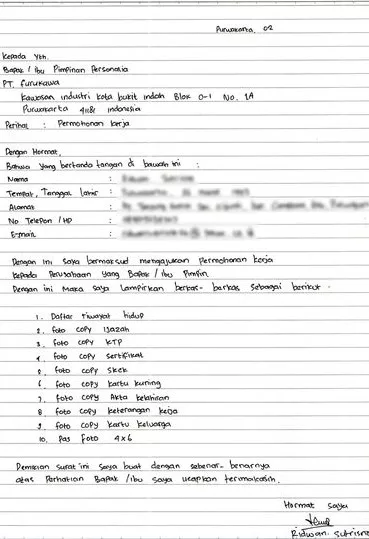 Purwakarta, 02
Kepada Yth.
Bapak / ibu Pimpinan Personalia
PT. Furukawa
Kawasan industri kota bukit indah Blok D-1 No. 1A
Purwakarta 41181 indonesia
Perihal : Permohonan kerja
Dengan Hormat,
Bahwa yang bertanda tangan di bawah ini :
Nama :
Tempat, Tanggal lahir :
Alamat :
No Telepon / HP :
E-mail :
Dengan ini saya bermaksud mengajukan permohonan kerja
kepada Perusahaan yang Bapak / ibu Pimpin
Dengan ini Maka saya lampirkan berkas-berkas sebagai berikut.
1. Daftar riwayat hidup
2. foto copy Ijazah
3. foto copy KTP
4. foto copy sertifikat
5. foto copy skck
6. foto copy kartu kuning
7. foto copy Akta kelahiran
8. foto copy keterangan kerja
9. foto copy kartu keluarga
10. Pas foto 4x6
Demikian surat ini saya buat dengan sebenar-benarnya
atas Perhatian Bapak /ibu saya ucapkan terimakasih.
Hormat saya
Ridwan. Sutrisna